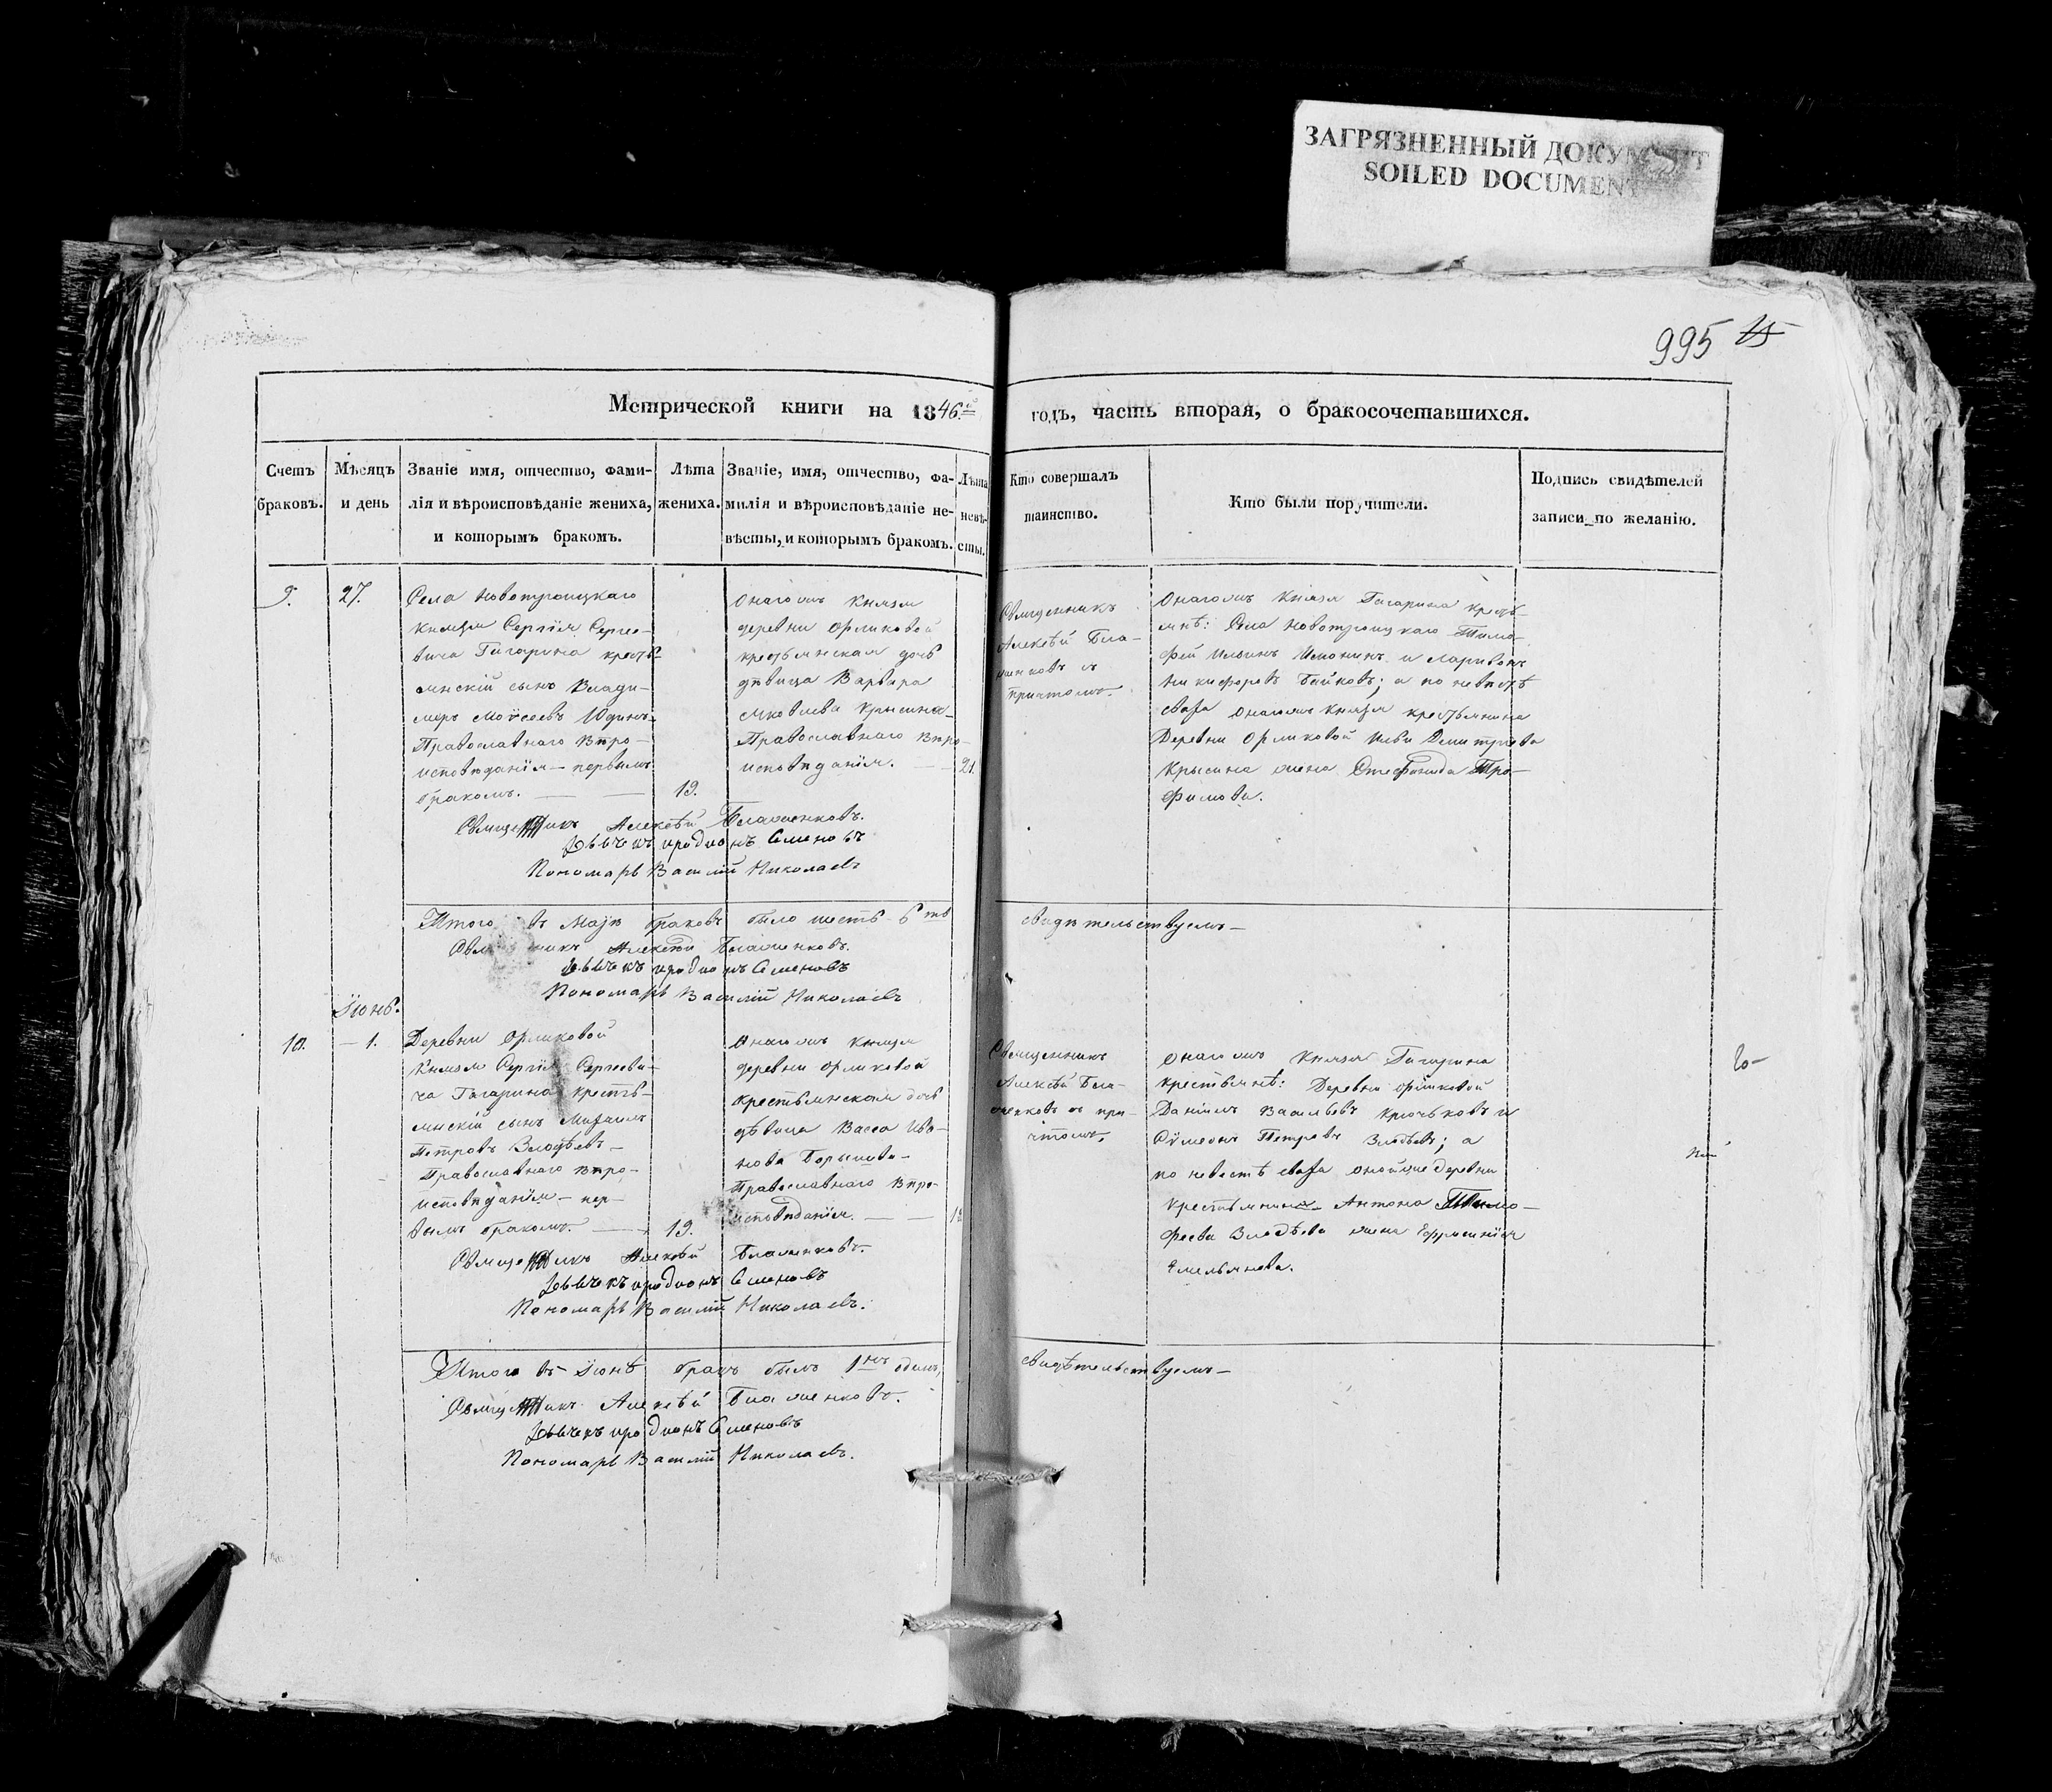 ЗАГРЯЗНЕННЫЙ ДОКУМЕНТ
SOILED DOCUMENT
995
Метрической книги на 1846.й
годъ, часть вторая, о бракосочетавшихся.
Счетъ браковъ.
Мѣсяцъ и день
Званіе имя, отчество, фами-
лія и вѣроисповѣданіе жениха,
и которымъ бракомъ.
Лѣта жениха.
Званіе, имя, отчество, фа-
милія и вѣроисповѣданіе не-
вѣсты, и которымъ бракомъ.
Лѣта невѣ-
сты.
Кто совершалъ
таинство.
Кто были поручители.
Подпись свидѣтелей
записи по желанію.
9.
27.
Села Новотроицкаго
Князя Сергія Сергее-
вича Гагарина кресть-
янскій сынъ Влади-
меръ Моѵсеевъ Юдинъ
Православнаго вѣро-
исповѣданія — первымъ
бракомъ.
19.
Онагожъ Князя
деревни Орликовой
крестьянская дочь
дѣвица Варвара
Яковлева Крысина
Православнаго вѣро-
исповѣданія.
21.
Священникъ
Алексѣй Бла-
женковъ съ
причтомъ.
Онагожъ Князя Гагарина кресть-
янѣ: Села Новотроицкаго Тимо-
фей Ильинъ и Ларивонъ
Никифоровъ Байковъ; а по невѣстѣ
сваха онагожъ Князя крестьянина
Деревни Орликовой Ильи Димитріева
Крысина жена Стефанида Тро-
фимова.
Священникъ Алексѣй Блаженковъ.
Дьячекъ иродионъ Семеновъ
Пономарь Василій Николаевъ
Итого въ Маѣ браковъ было шесть 6ть
свидѣтельствуемъ —
Священникъ Алексѣй Блаженковъ.
Дьячекъ иродионъ Семеновъ
Пономарь Василій Николаевъ
Іюнь.
10.
— 1.
Деревни Орликовой
Князя Сергія Сергееви-
ча Гагарина кресть-
янскій сынъ Михаилъ
Петровъ
Православнаго вѣро-
исповѣданія — пер-
вымъ бракомъ.
19.
Онагожъ Князя
деревни Орликовой
крестьянская дочь
дѣвица Васса Ива-
нова
Православнаго вѣро-
исповѣданія.
Священникъ
Алексѣй Бла-
женковъ съ при-
чтомъ.
Онагожъ Князя Гагарина
крестьянѣ: Деревни Орликовой
Даніилъ Васильевъ Крючьковъ и
Сѵмеонъ Петровъ а
по невѣстѣ сваха оной же деревни
крестьянина Антона Тимо-
феева жена Ефросинія
Емельянова.
Священникъ Алексѣй Блаженковъ.
Дьячекъ иродионъ Семеновъ
Пономарь Василій Николаевъ.
Итого въ Іюнѣ бракъ былъ 1нъ одинъ,
свидѣтельствуемъ —
Священникъ Алексѣй Блаженковъ.
Дьячекъ иродионъ Семеновъ
Пономарь Василій Николаевъ.